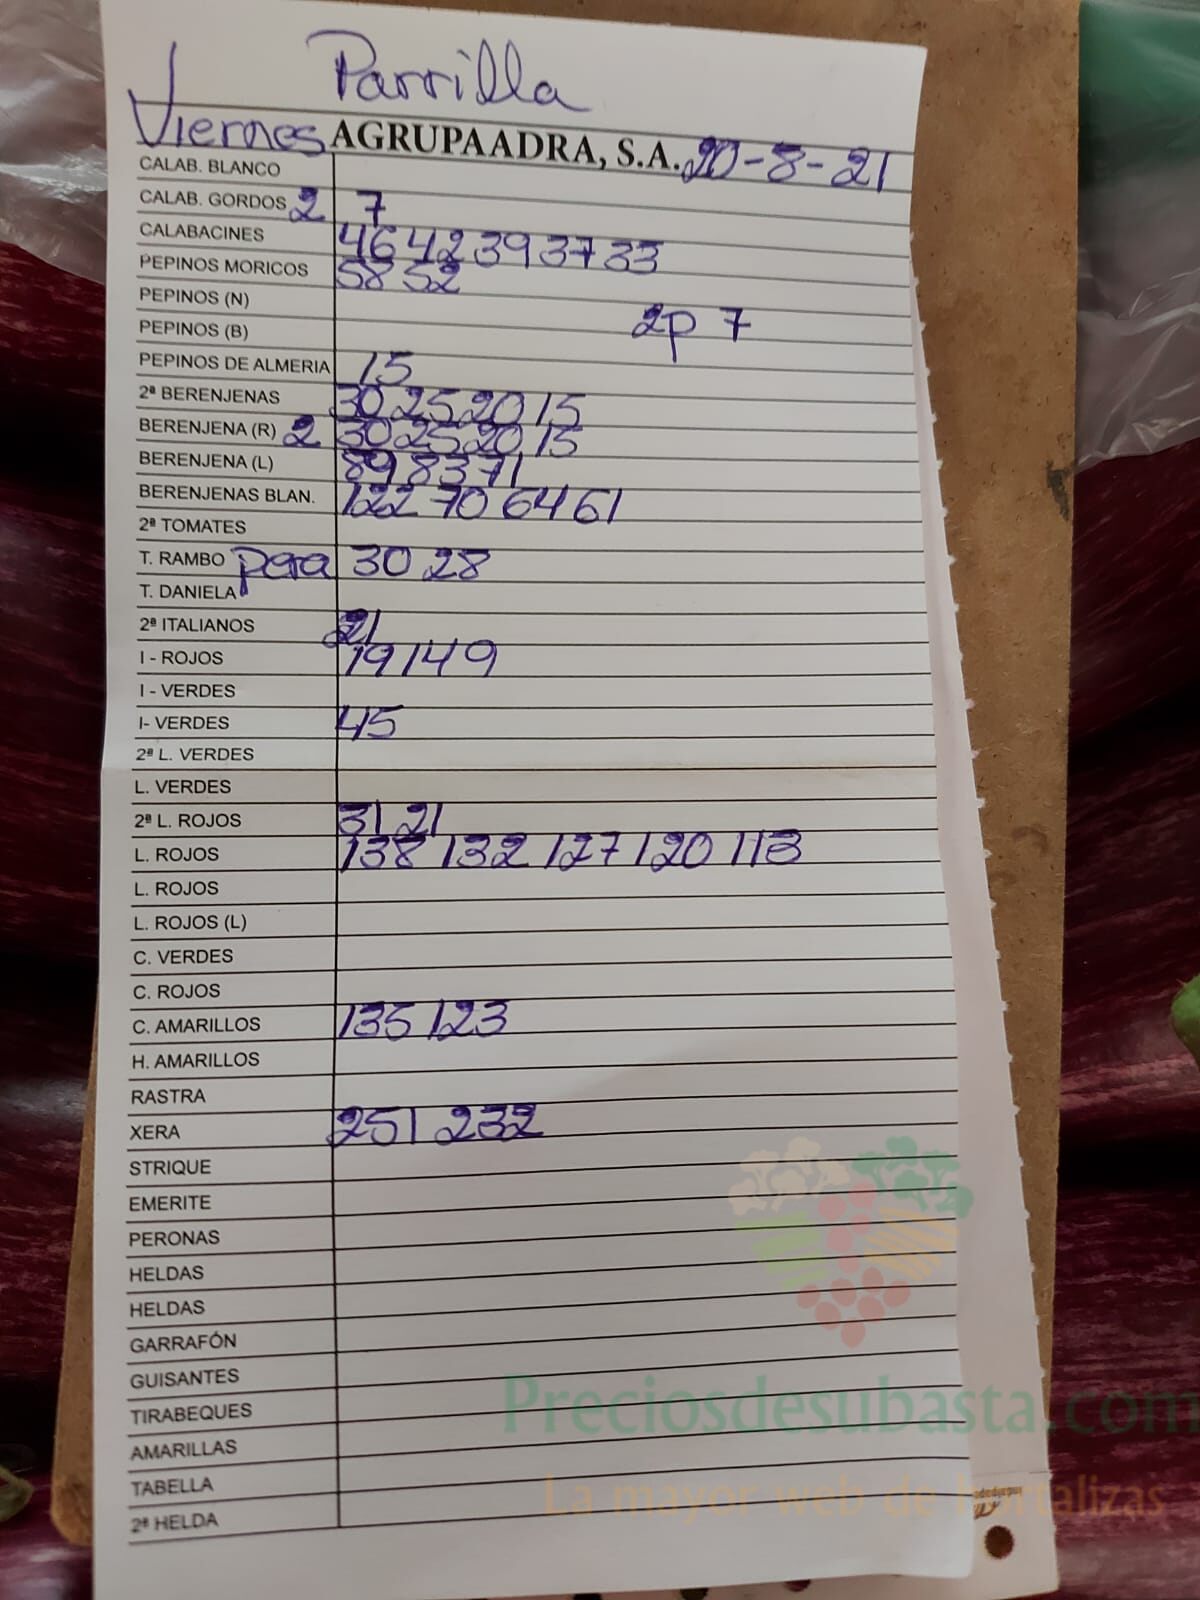 Parrilla
Viernes AGRUPAADRA, S.A. 20-8-21
CALAB. BLANCO
CALAB. GORDOS 2 7
CALABACINES 46 42 39 37 33
PEPINOS MORICOS 58 52
PEPINOS (N) 2p 7
PEPINOS (B)
PEPINOS DE ALMERIA 15
2ª BERENJENAS 30 25 20 15
BERENJENA (R) 2 30 25 20 15
BERENJENA (L) 89 83 71
BERENJENAS BLAN. 122 70 64 61
2ª TOMATES
T. RAMBO pera 30 28
T. DANIELA
2ª ITALIANOS 21
I - ROJOS 79 149
I - VERDES
I- VERDES 45
2ª L. VERDES
L. VERDES
2ª L. ROJOS 31 21
L. ROJOS 138 132 127 120 113
L. ROJOS
L. ROJOS (L)
C. VERDES
C. ROJOS
C. AMARILLOS 135 123
H. AMARILLOS
RASTRA
XERA 251 232
STRIQUE
EMERITE
PERONAS
HELDAS
HELDAS
GARRAFÓN
GUISANTES
TIRABEQUES
AMARILLAS
TABELLA
2ª HELDA
Preciosdesubasta.com
La mayor web de hortalizas